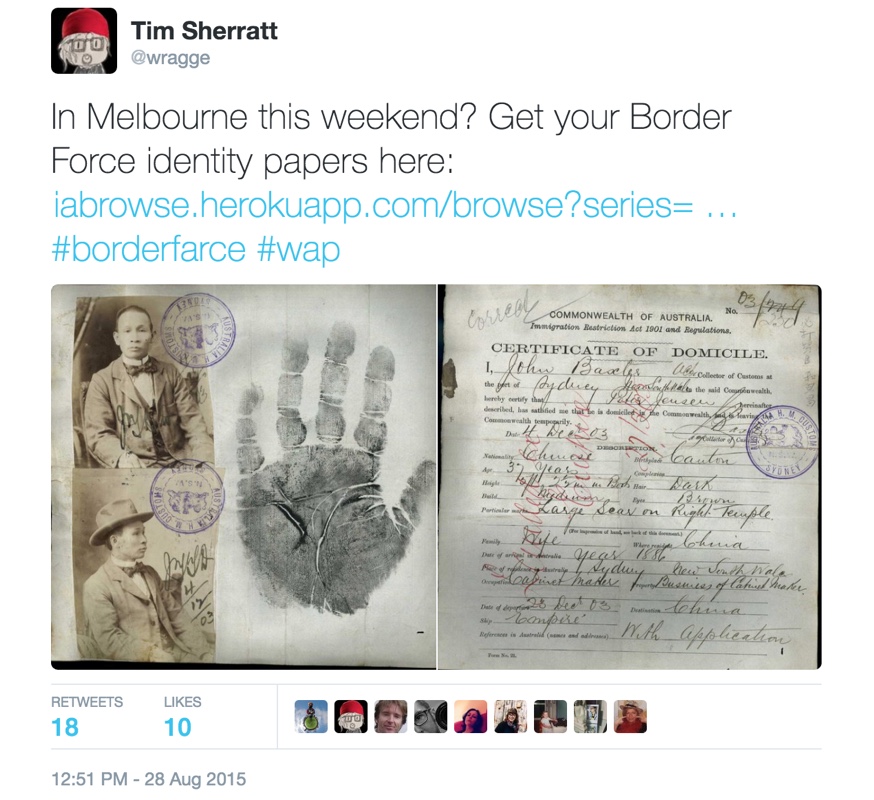 Tim Sherratt
@wragge
In Melbourne this weekend? Get your Border
Force identity papers here:
iabrowse.herokuapp.com/browse?series= ...
#borderfarce #wap
SYDNEY
AUSTRALIA H. M. CUSTOMS
4
12
03
Correct
No. 03/
COMMONWEALTH OF AUSTRALIA.
Immigration Restriction Act 1901 and Regulations.
CERTIFICATE OF DOMICILE.
I, John Baxter Collector of Customs at
the port of Sydney the said Commonwealth,
hereby certify that hereinafter
described, has satisfied me that he is domiciled in the Commonwealth, and is leaving
Commonwealth temporarily.
Date 4 Dec 03
DESCRIPTION.
Nationality Chinese Birthplace Canton
Age 37 Years Complexion
Height in Boots Hair Dark
Build Medium Eyes Brown
Particular marks Large Scar on Right Temple.
(For impression of hand, see back of this document.)
Family Wife Where resident China
Date of arrival in Australia Year 1886
Place of residence in Australia Sydney New South Wales
Occupation Cabinet Maker Property Business of Cabinet Maker.
Date of departure 28 Dec 03 Destination China
Ship Empire
References in Australia (names and addresses) With Application
Form No. 21.
AUSTRALIA H. M. CUSTOMS
SYDNEY
RETWEETS
18
LIKES
10
12:51 PM - 28 Aug 2015